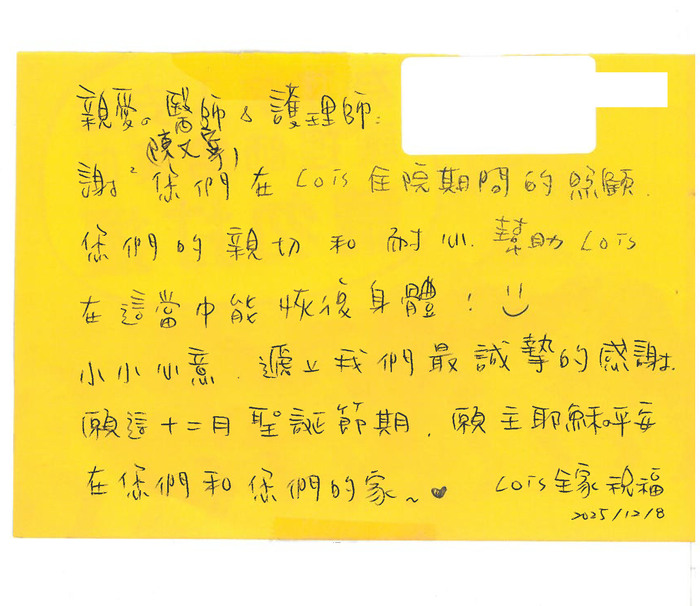 親愛。醫師 & 護理師:
(陳文
謝² 您們在 Lois 住院期間的照顧.
您們的親切和耐心. 幫助 Lois
在這當中能恢復身體! :)
小小心意. 遞上我們最誠摯的感謝.
願這十二月聖誕節期. 願主耶穌平安
在您們和您們的家~♥
Lois全家祝福
2025/12/8